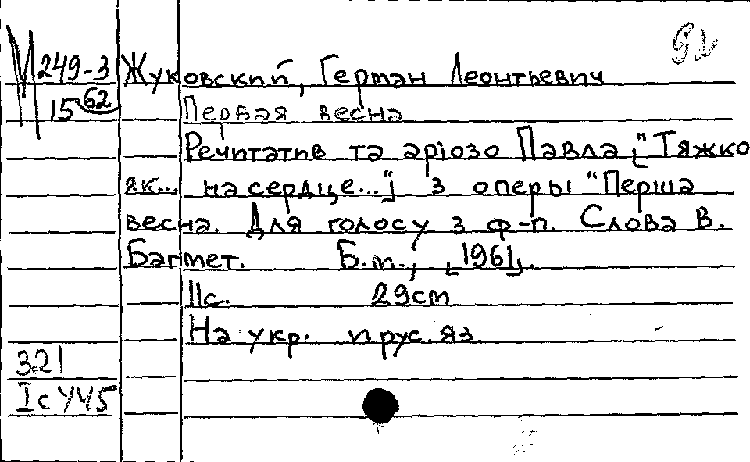 М 249-3 Жуковский, Герман Леонтьевич
15 62 Первая весна
Речитатив та аріозо Павла ["Тяжко
як... на сердце..."] з оперы "Перша
весна. Для голосу з ф-п. Слова В.
Багмет. Б.м., [1961].
11с. 29см
На укр. и рус. яз
321
Iс У45